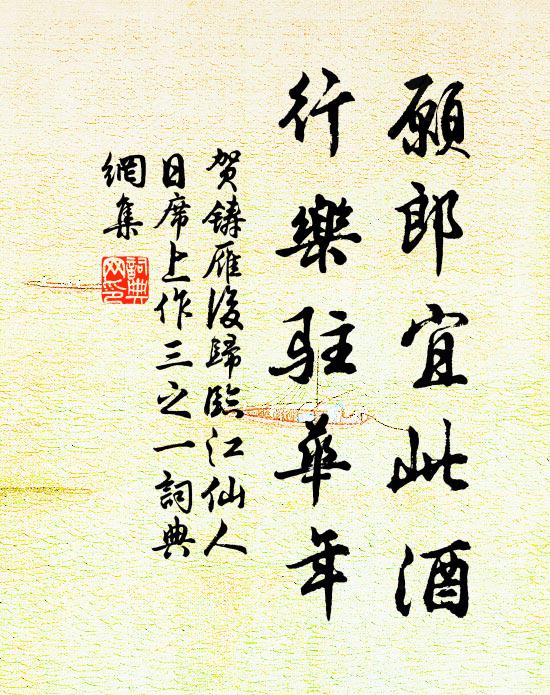 願郎宜此酒
行樂駐華年
贺鑄雁後歸臨江仙人
日席上作三之一詞典
網集
詞典
网印